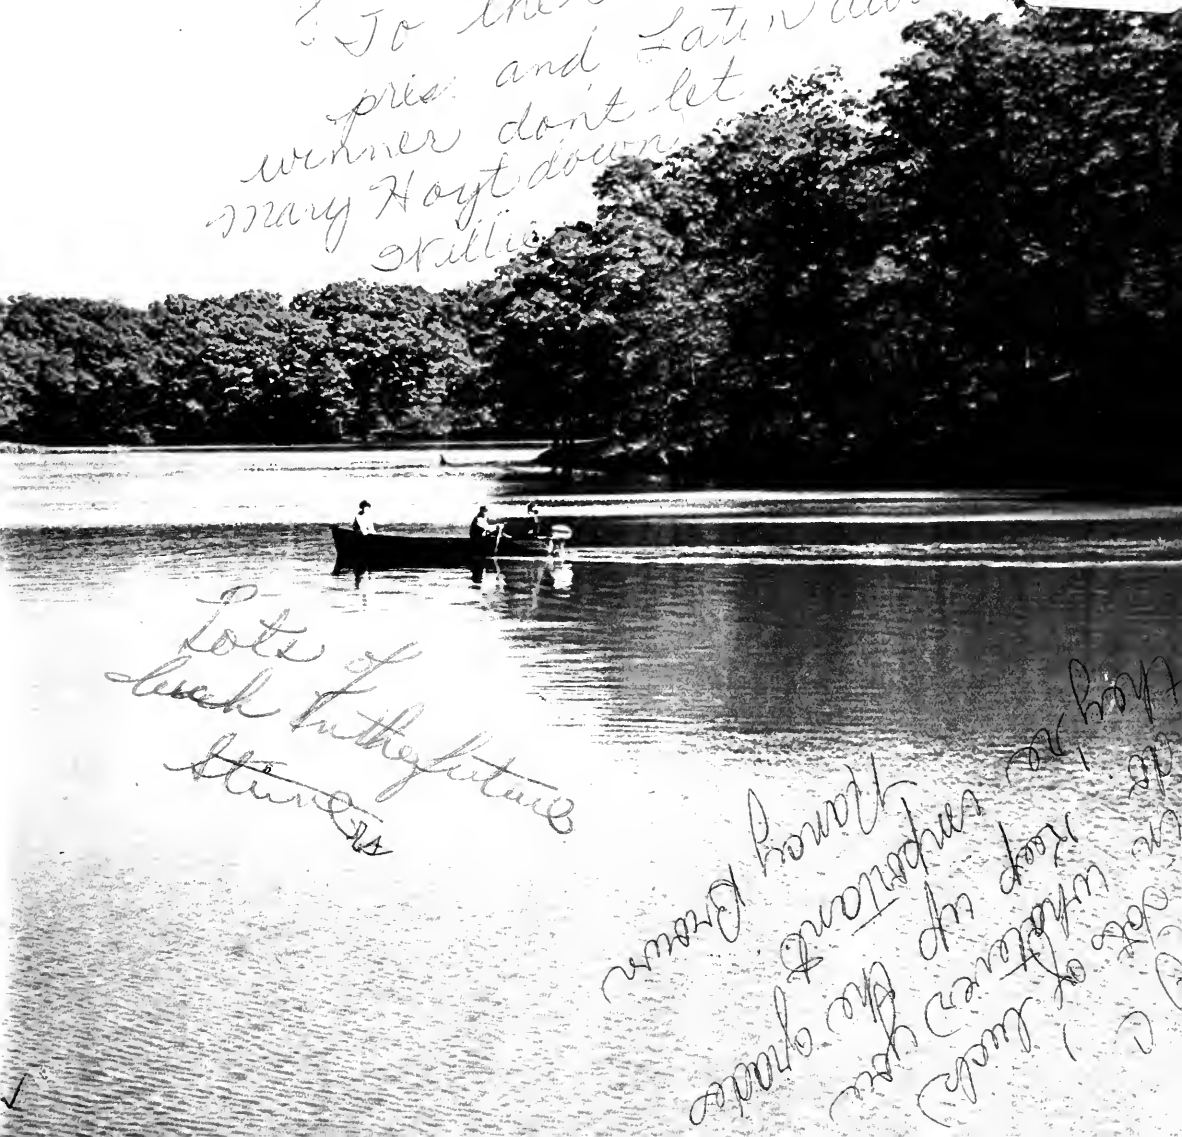 To the
pres. and Latin
winner don't let
Mary Hoyt down
Willie
Lots of
luck In the future
C
Lots of luck
in whatever you
do. Keep up the grades
they're important.
Nancy Brown